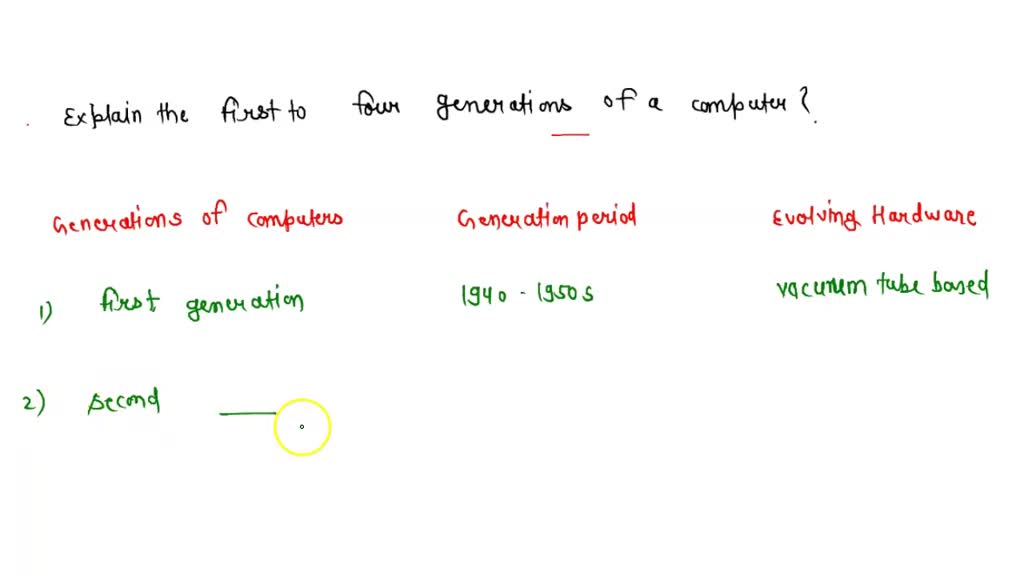 Explain the first to four generations of a computer?
Generations of computers Generation period Evolving Hardware
1) first generation 1940 - 1950s vacunm tube based
2) second